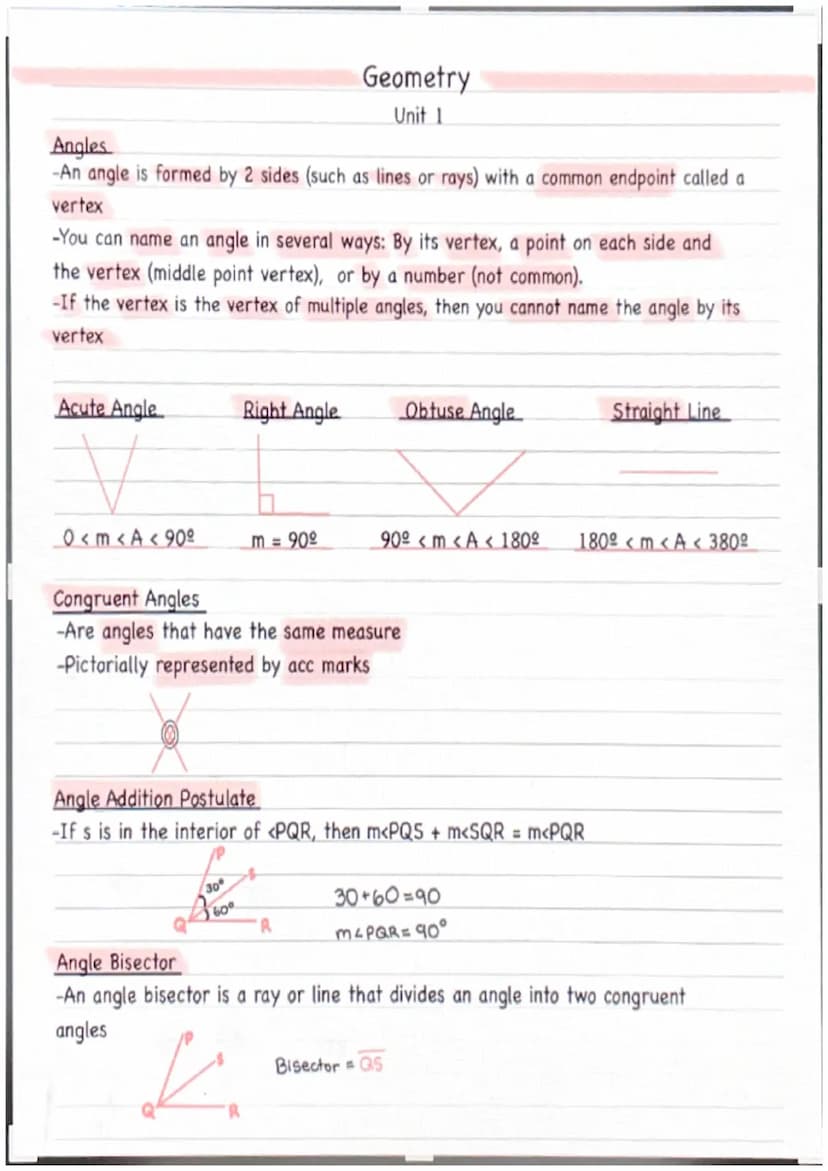 Geometry
Unit 1
Angles
-An angle is formed by 2 sides (such as lines or rays) with a common endpoint called a
vertex
-You can name an angle in several ways: By its vertex, a point on each side and
the vertex (middle point vertex), or by a number (not common).
-If the vertex is the vertex of multiple angles, then you cannot name the angle by its
vertex
Acute Angle Right Angle Obtuse Angle Straight Line
0 < m < A < 90º m = 90º 90º < m < A < 180º 180º < m < A < 380º
Congruent Angles
-Are angles that have the same measure
-Pictorially represented by acc marks
Angle Addition Postulate
-If s is in the interior of <PQR, then m<PQS + m<SQR = m<PQR
P
S
30°
30+60=90
60°
Q R
m∠PQR=90°
Angle Bisector
-An angle bisector is a ray or line that divides an angle into two congruent
angles
P
S
Bisector = Q̅S̅
Q R